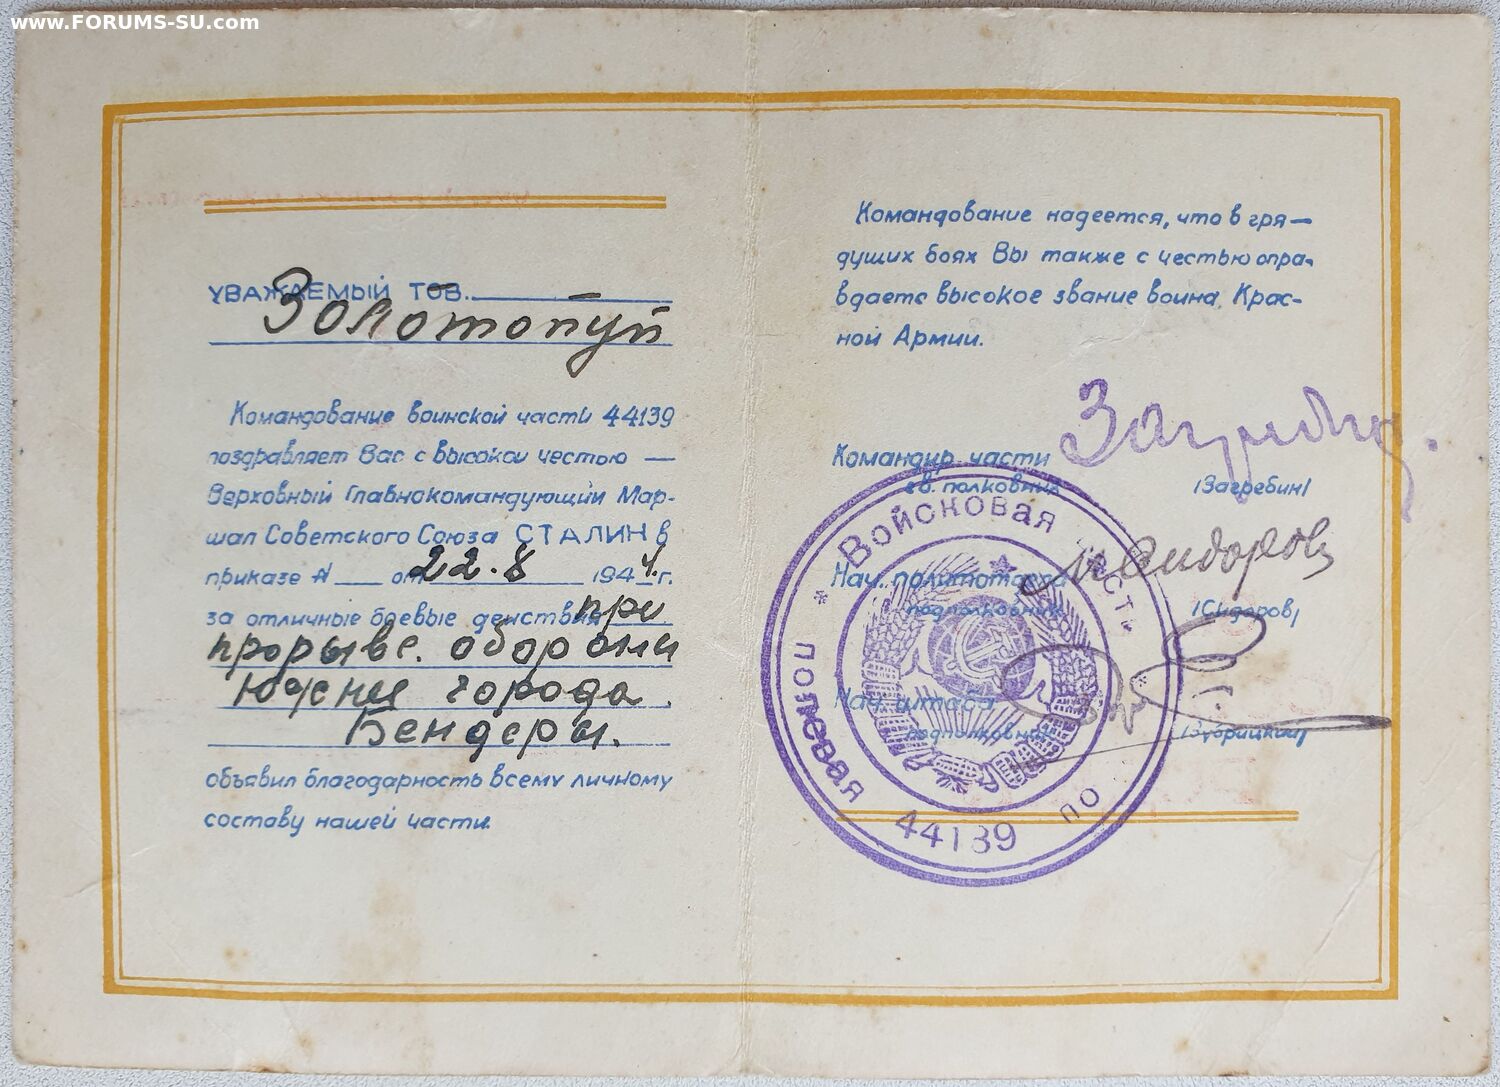 www.FORUMS-SU.com
УВАЖАЕМЫЙ ТОВ.
Золотопуп
Командование воинской части 44139
поздравляет Вас с высокой честью —
Верховный Главнокомандующий Мар-
шал Советского Союза СТАЛИН в
приказе № от 22.8 1944 г.
за отличные боевые действия при
прорыве обороны
южнее города
Бендеры.
объявил благодарность всему личному
составу нашей части.
Командование надеется, что в гря-
дущих боях Вы также с честью опра-
вдаете высокое звание воина Крас-
ной Армии.
Командир части
гв. полковник /Загребин/
Нач. политотдела
подполковник /Сидоров/
Нач. штаба
подполковник /Зубрицкий/
Войсковая часть
полевая по
44139